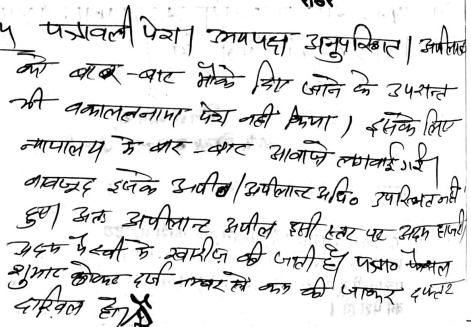 पत्रावली पेश। उभयपक्ष अनुपस्थित। अपीलान्ट
को बार-बार मौके दिए जाने के उपरान्त
भी वकालतनामा पेश नहीं किया। इसके लिए
न्यायालय के बार-बार आवाजें लगवाई गई।
बावजूद इसके अपी०/अपीलान्ट अधि० उपस्थित नहीं
हुए। अतः अपीलान्ट अपील इसी स्तर पर अदम हाजरी
अदम पैरवी में खारीज की जाती है। पत्रा० फैसल
शुमार होकर दर्ज नम्बर से कम की जाकर दफ्तर
दाखिल हो।